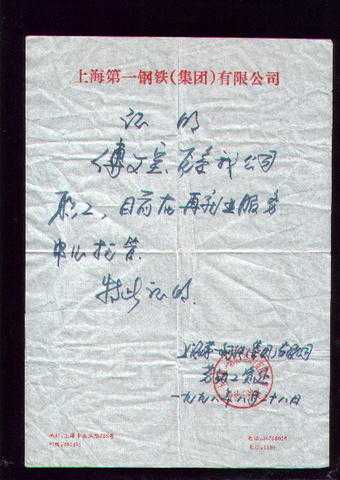 上海第一钢铁(集团)有限公司
证 明
傅文 系我公司
职工,目前在再就业服务
中心托管.
特此证明.
上海第一钢铁(集团)有限公司
劳动工资处
一九九八年八月二十八日